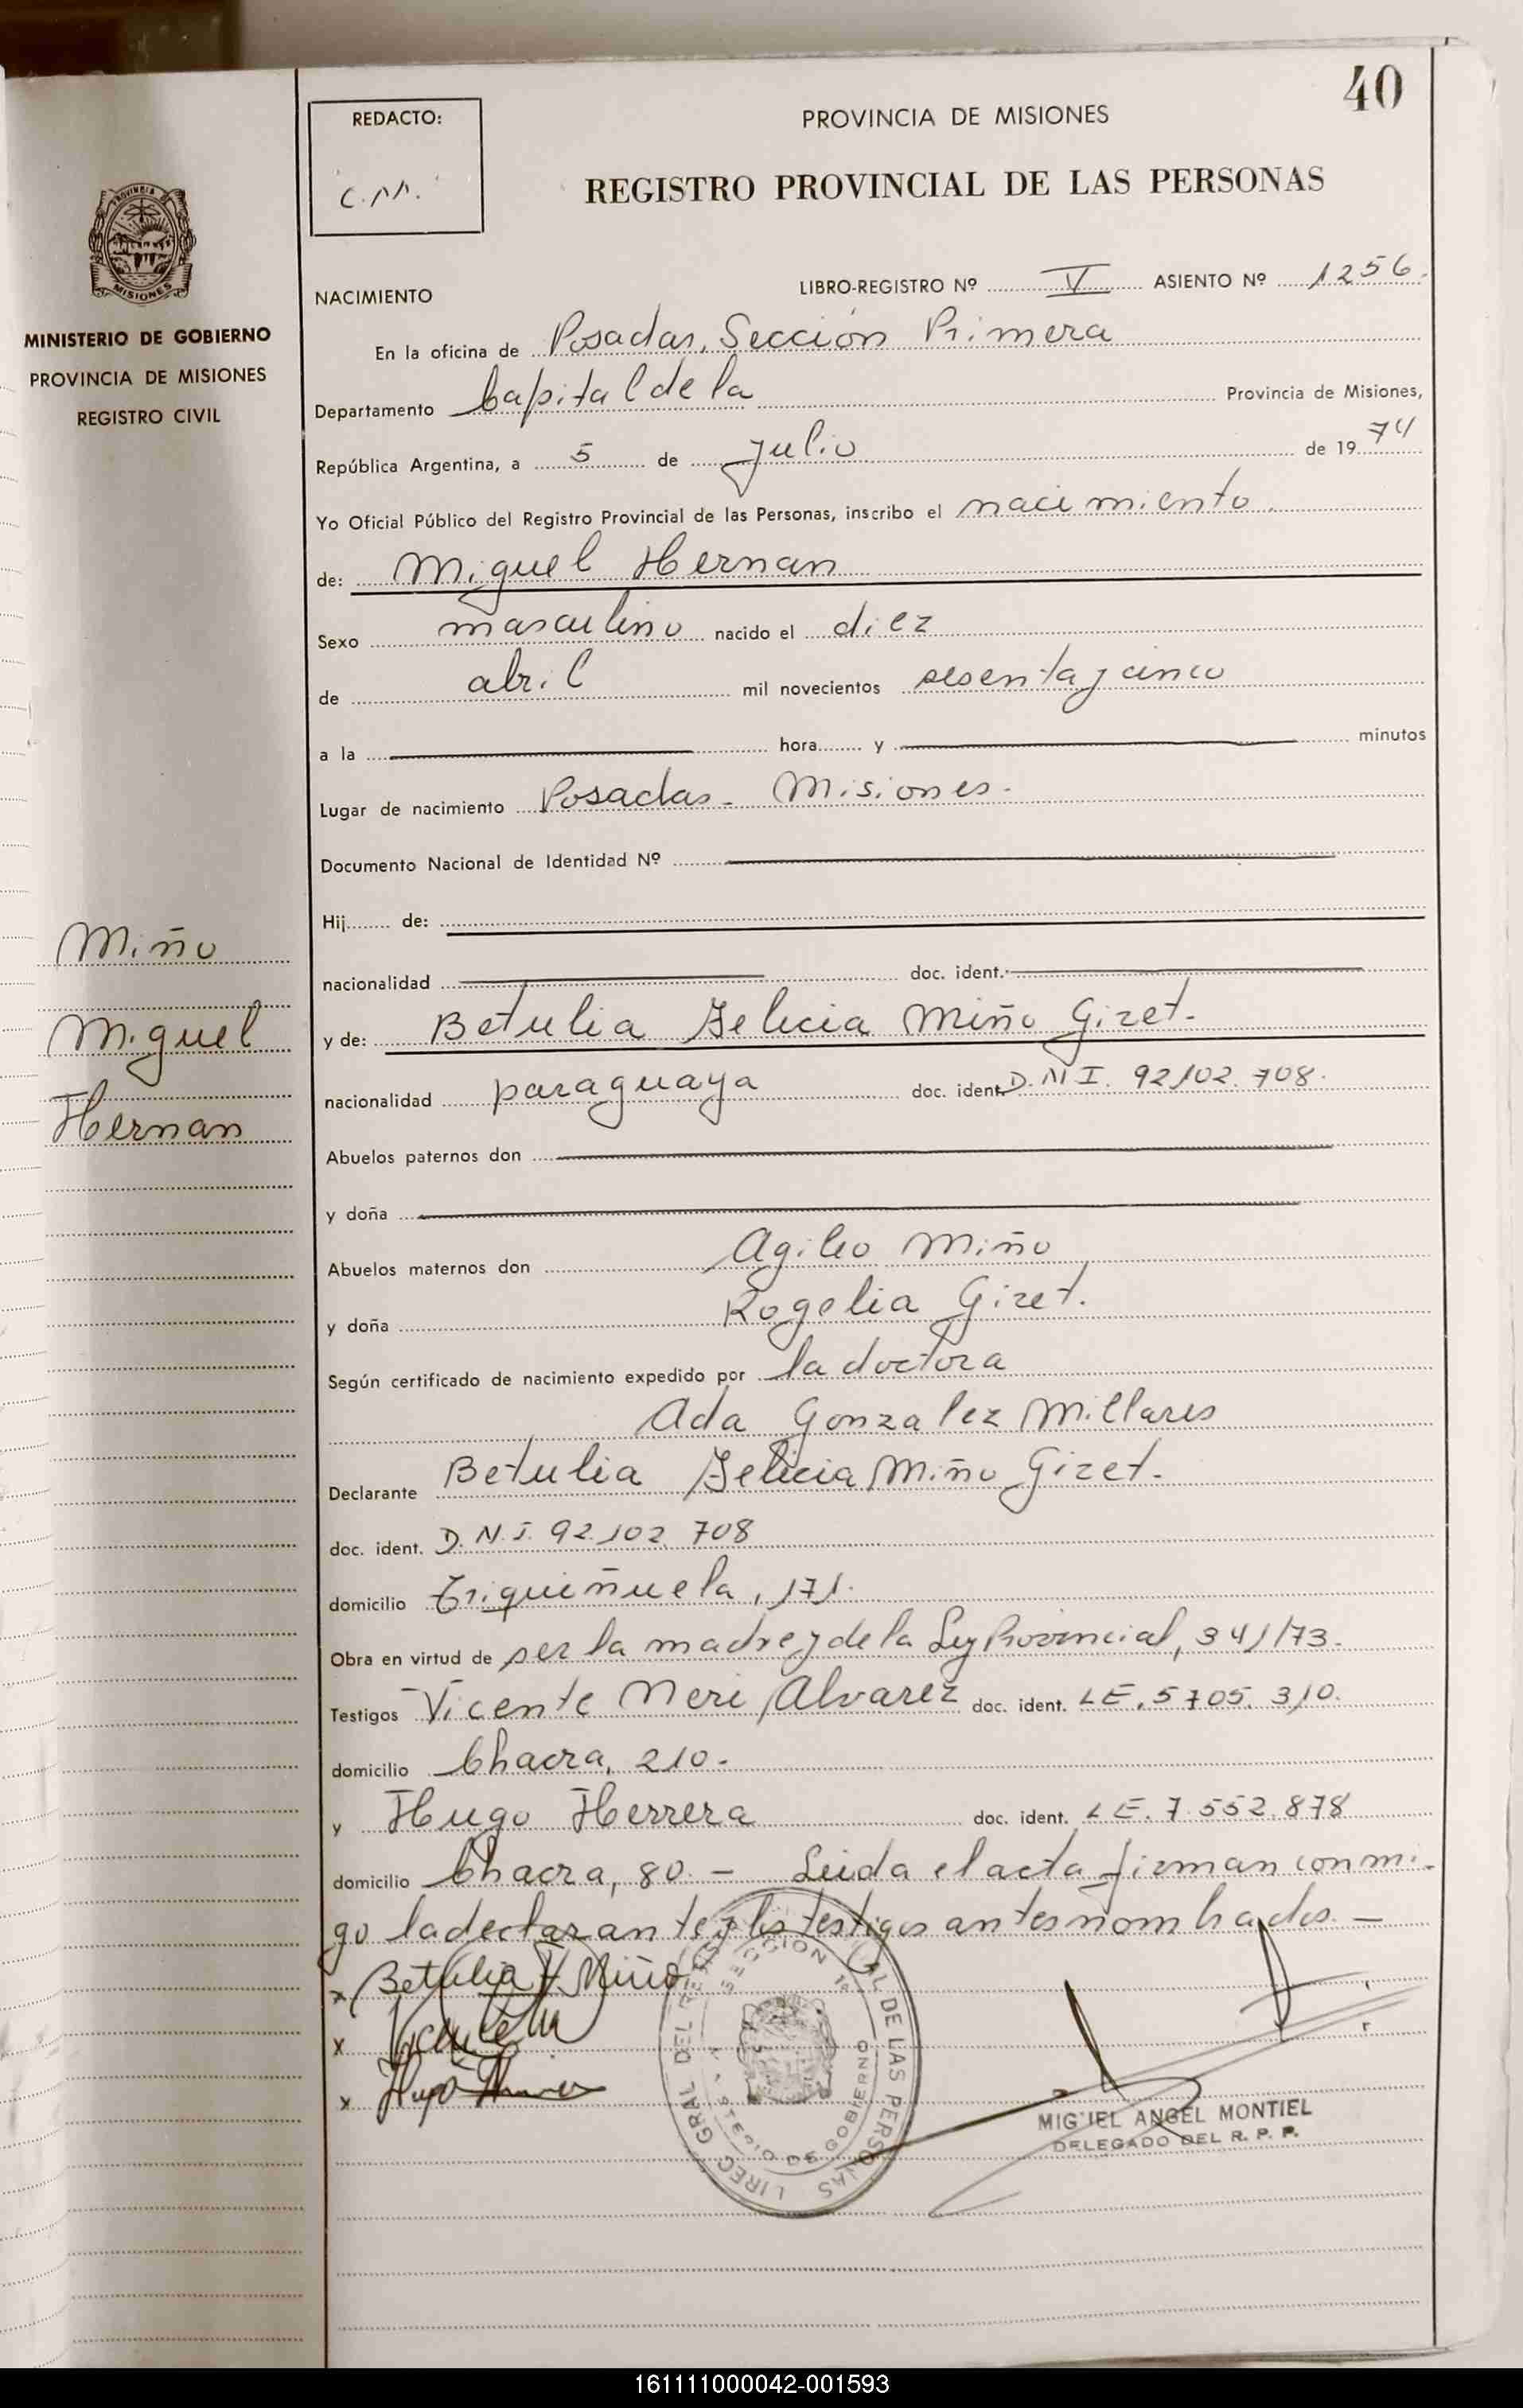 40
REDACTO:
C.M.
PROVINCIA DE MISIONES
REGISTRO PROVINCIAL DE LAS PERSONAS
PROVINCIA
MISIONES
MINISTERIO DE GOBIERNO
PROVINCIA DE MISIONES
REGISTRO CIVIL
NACIMIENTO
LIBRO-REGISTRO Nº V ASIENTO Nº 1256.
En la oficina de Posadas, Sección Primera
Departamento Capital de la Provincia de Misiones,
República Argentina, a 5 de Julio de 1974
Yo Oficial Público del Registro Provincial de las Personas, inscribo el nacimiento
de: Miguel Hernan
Sexo masculino nacido el diez
de abril mil novecientos sesenta y cinco
a la hora y minutos
Lugar de nacimiento Posadas - Misiones.
Documento Nacional de Identidad Nº
Hij de:
nacionalidad doc. ident.
y de: Betulia Felicia Miño Gizet.
nacionalidad paraguaya doc. ident. D.N.I. 92.102.708.
Abuelos paternos don
y doña
Abuelos maternos don Agileo Miño
y doña Rogelia Gizet.
Según certificado de nacimiento expedido por la doctora
Ada Gonzalez Millares
Declarante Betulia Felicia Miño Gizet.
doc. ident. D.N.I. 92.102.708
domicilio Triquiñuela, 171.
Obra en virtud de ser la madre y de la Ley Provincial, 341/73.
Testigos Vicente Neri Alvarez doc. ident. LE. 5705.310.
domicilio Chacra, 210.-
y Hugo Herrera doc. ident. LE. 7.552.878
domicilio Chacra, 80.- Leida el acta firman conmi-
go la declarante y los testigos antes nombrados.-
Miño
Miguel
Hernan
x Betulia F Miño
x
x Hugo
DE LAS PERSONAS
SECCION 1ª
DE GOBIERNO
MIGUEL ANGEL MONTIEL
DELEGADO DEL R. P. P.
161111000042-001593